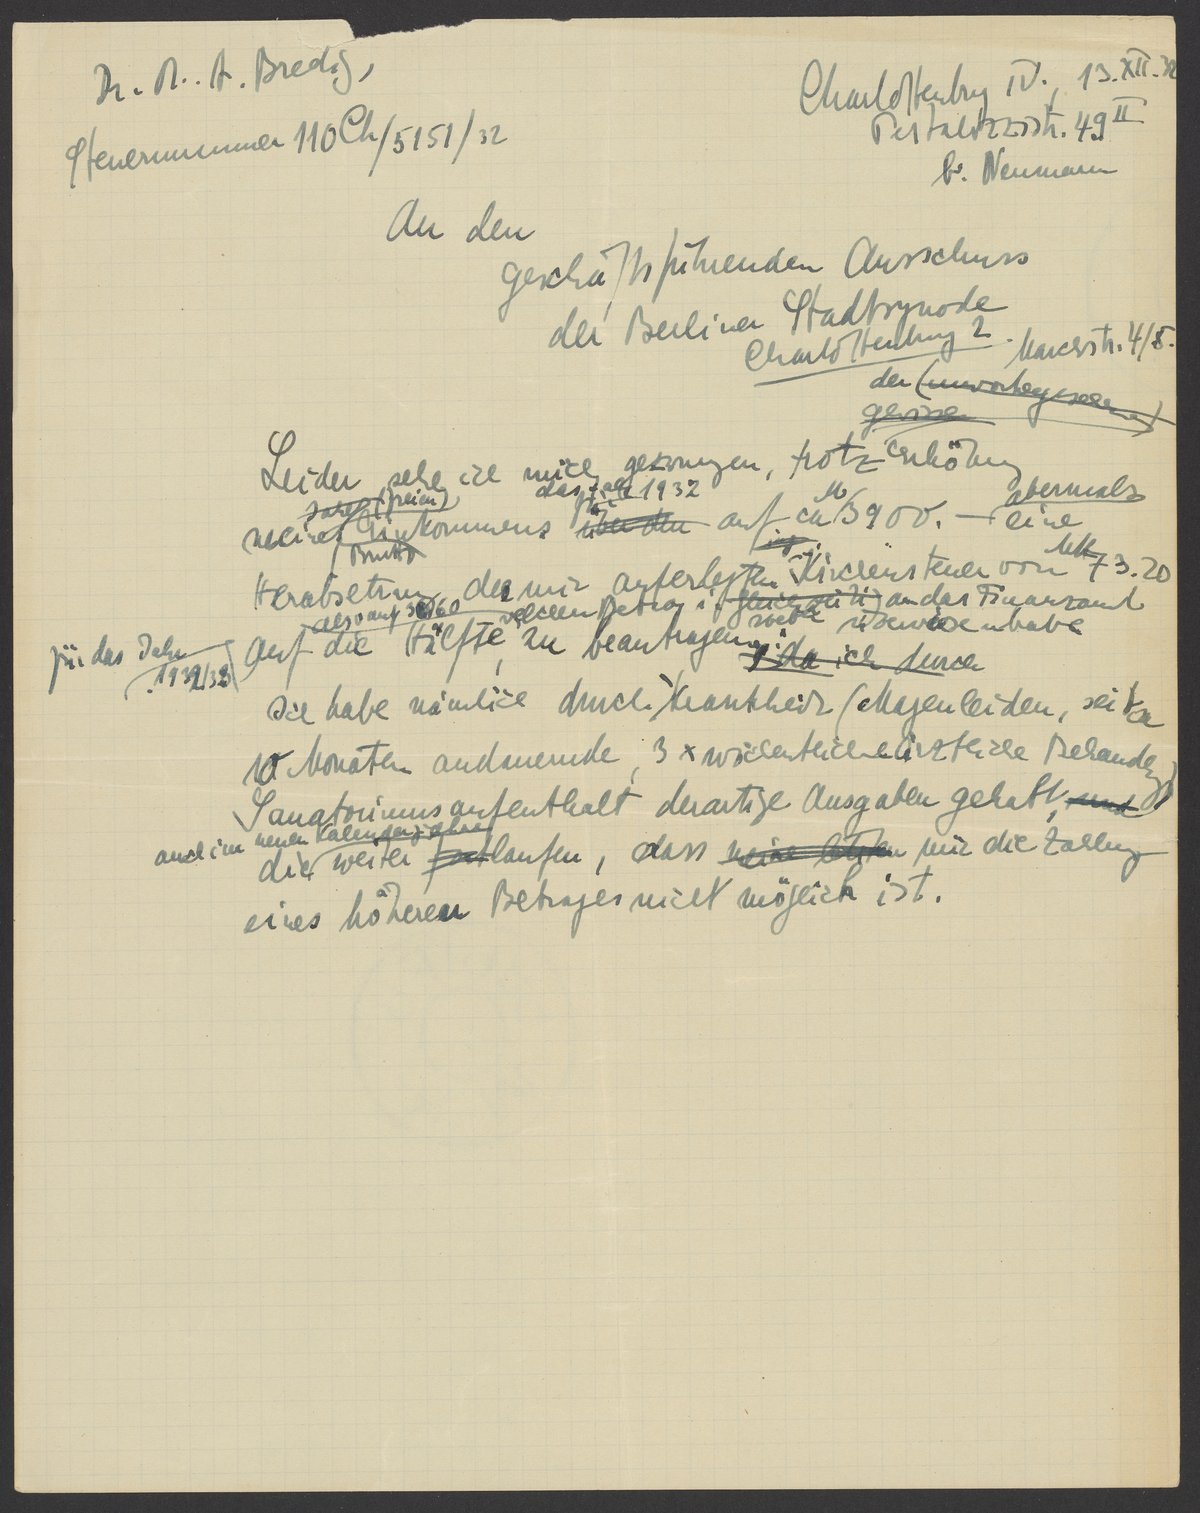 Dr. M. A. Bredig,
Steuernummer 110 Ch/5151/32
Charlottenburg IV., 13.XII.32
Pestalozzistr. 49 II
b. Neumann
An den
geschäftsführenden Ausschuss
der Berliner Stadtsynode
Charlottenburg 2.
der
gewisse
Leider sehe ich mich gezwungen, trotz Erhöhung
das Jahr 1932 abermals
meines Einkommens für über den auf ca M 3900.– eine
(Brutto
Herabsetzung der mir auferlegten Kirchensteuer von Mk 73.20
also auf 36/60 welchen Betrag ich gleichzeitig an das Finanzamt
für das Jahr
1932/33
auf die Hälfte, zu beantragen, überwiesen habe
, da ich durch
Ich habe nämlich durch Krankheit (Magenleiden, seit ca
10 Monaten andauernde, 3 x wöchentliche ärztliche Behandlg)
Sanatoriumsaufenthalt derartige Ausgaben gehabt, und
auch im neuen Kalenderjahre
die weiter laufen, dass mir die Zahlung
eines höheren Betrages nicht möglich ist.